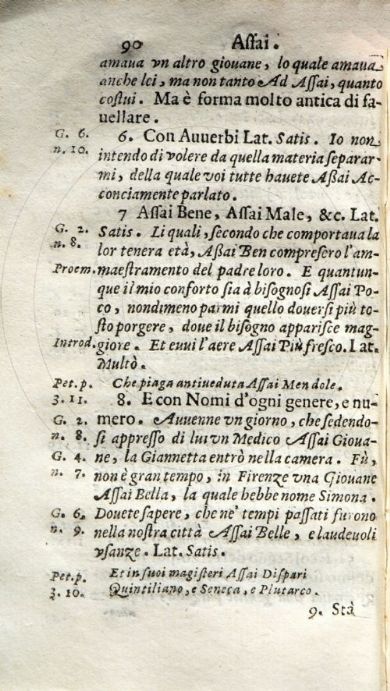 90 Assai.
amaua vn altro giouane, lo quale amaua
anche lei, ma non tanto Ad Assai, quanto
costui. Ma è forma molto antica di fa
uellare.
G. 6. 6. Con Auuerbi Lat. Satis. Io non
n. 10. intendo di volere da quella materia separar-
mi, della quale voi tutte hauete Aßai Ac-
conciamente parlato.
7 Assai Bene, Assai Male, &c. Lat.
G. 2. Satis. Li quali, secondo che comportaua la
n. 8. lor tenera età, Aßai Ben compresero l'am-
Proem. maestramento del padre loro. E quantun-
que il mio conforto sia à bisognosi Assai Po-
co, nondimeno parmi quello douersi più to-
sto porgere, doue il bisogno apparisce mag-
Introd. giore. Et euui l'aere Assai Più fresco. Lat.
Multò.
Pet. p. Che piaga antiueduta Assai Men dole.
3. 11. 8. E con Nomi d'ogni genere, e nu-
G. 2. mero. Auuenne vn giorno, che sedendo-
n. 8. si appresso di lui vn Medico Assai Gioua-
G. 4. ne, la Giannetta entrò nella camera. Fù,
n. 7. non è gran tempo, in Firenze vna Giouane
Assai Bella, la quale hebbe nome Simona.
G. 6. Douete sapere, che ne' tempi passati furono
n. 9. nella nostra città Assai Belle, e laudeuoli
vsanze. Lat. Satis.
Pet. p. Et in suoi magisteri Assai Dispari
3. 10. Quintiliano, e Seneca, e Plutarco.
9. Stà